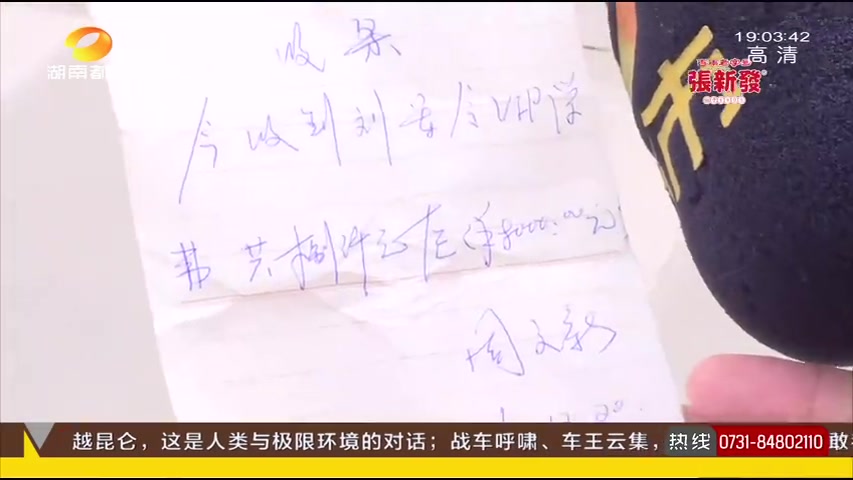 湖南都
19:03:42
高清
張新發
收条
今收到刘军令VIP学
费 共捌仟元正(¥8000.00元)
周文新
越昆仑，这是人类与极限环境的对话；战车呼啸、车王云集，
热线 0731-84802110 敢